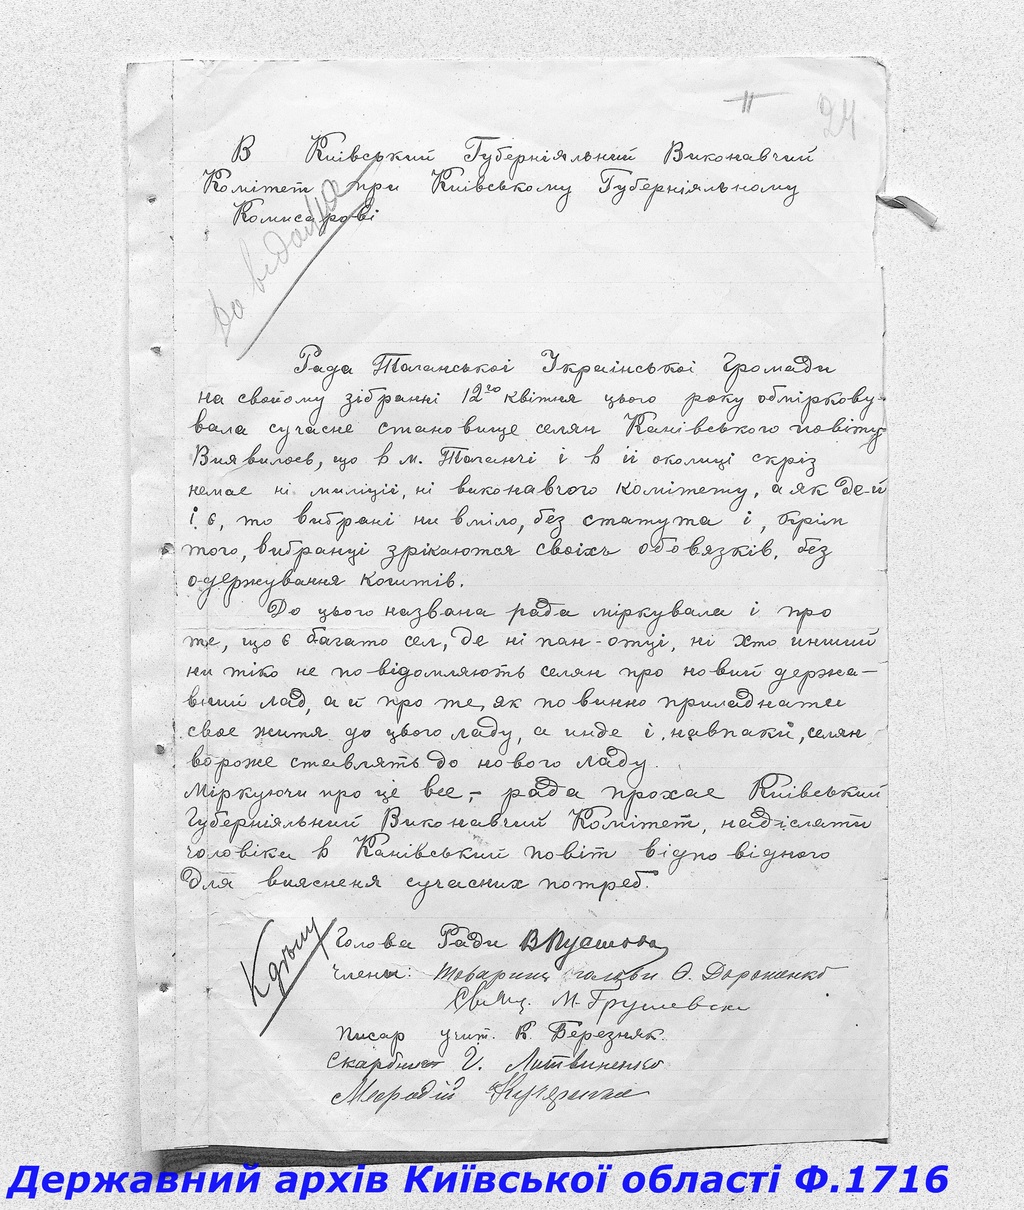 24
В Київський Губерніяльний Виконавчий
Комітет при Київському Губерніяльному
Комисарові
До відома
Рада Таганськоі Украінськоі Громади
на свойому зібранні 12го квітня цього року обміркову-
вала сучасне становище селян Канівського повіту
Виявилось, що в м. Таганчі і в іі околиці скріз
немае ні миліціі, ні виконавчого комітету, а як де-й
і є, то вибрані не вміло, без статута і, крім
того, вибранці зрікаются своіхъ обовязків, без
одержування коштів.
До цього названа рада міркувала і про
те, що є багато сел, де ні пан-отці, ні хто инший
ни тіко не повідомляють селян про новий держа-
вний лад, а й про те, як повинно приладнати
свое життя до цього ладу, а инде і, навпаки, селян
вороже ставлять до нового ладу.
Міркуючи про це все, – рада прохае Київський
Губерніяльний Виконавчий Комітет, надіслати
чоловіка в Канівський повіт відповідного
для вияснення сучасних потреб.
Голова Ради
члены: товариш голови О. Дорошенко
Свящ. М. Грушевськ
Писар учит. К. Березняк.
Скарбник Г. Литвиненко
Мефодій Кучеренко
К делу
Державний архів Київської області Ф.1716